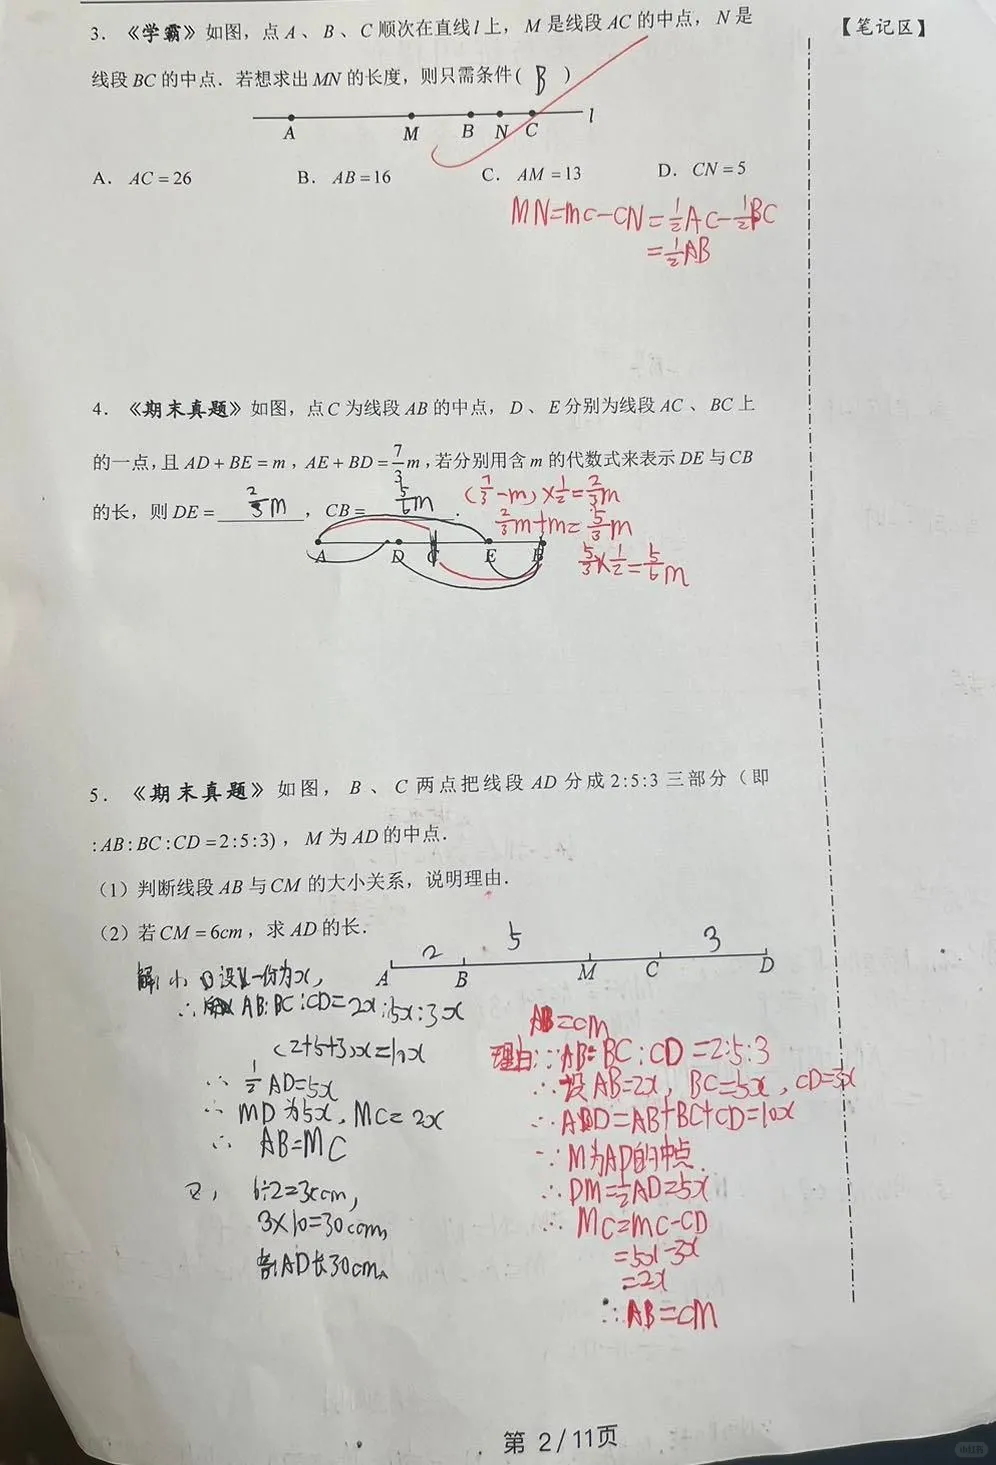 3. 《学霸》如图，点 A 、 B 、 C 顺次在直线 l 上， M 是线段 AC 的中点， N 是
【笔记区】
线段 BC 的中点．若想求出 MN 的长度，则只需条件( B )
A M B N C l
A． AC = 26 B． AB = 16 C． AM = 13 D． CN = 5
MN=MC-CN=1/2AC-1/2BC
=1/2AB
4. 《期末真题》如图，点 C 为线段 AB 的中点， D 、 E 分别为线段 AC 、 BC 上
的一点，且 AD + BE = m ，AE + BD = 7/3 m ，若分别用含 m 的代数式来表示 DE 与 CB
的长，则 DE = 2/3m ， CB = 5/6m ．
(7/3-m)×1/2=2/3m
2/3m+m=5/3m
A D C E B
5/3×1/2=5/6m
5. 《期末真题》如图， B 、 C 两点把线段 AD 分成 2:5:3 三部分（即
:AB : BC : CD = 2:5:3) ， M 为 AD 的中点．
（1）判断线段 AB 与 CM 的大小关系，说明理由．
（2）若 CM = 6cm ，求 AD 的长．
2 5 3
A B M C D
设一份为x,
∴ AB:BC:CD=2x:5x:3x
(2+5+3)x=10x
∴ 1/2AD=5x
∴ MD为5x, MC=2x
∴ AB=MC
2, 6÷2=3cm,
3×10=30cm,
AD长30cm.
AB=CM
理由:∵AB:BC:CD=2:5:3
∴设AB=2x, BC=5x, CD=3x
∴AD=AB+BC+CD=10x
∵M为AD的中点.
∴DM=1/2AD=5x
∴MC=MC-CD
=5x-3x
=2x
∴AB=CM
第 2 / 11页
小红书